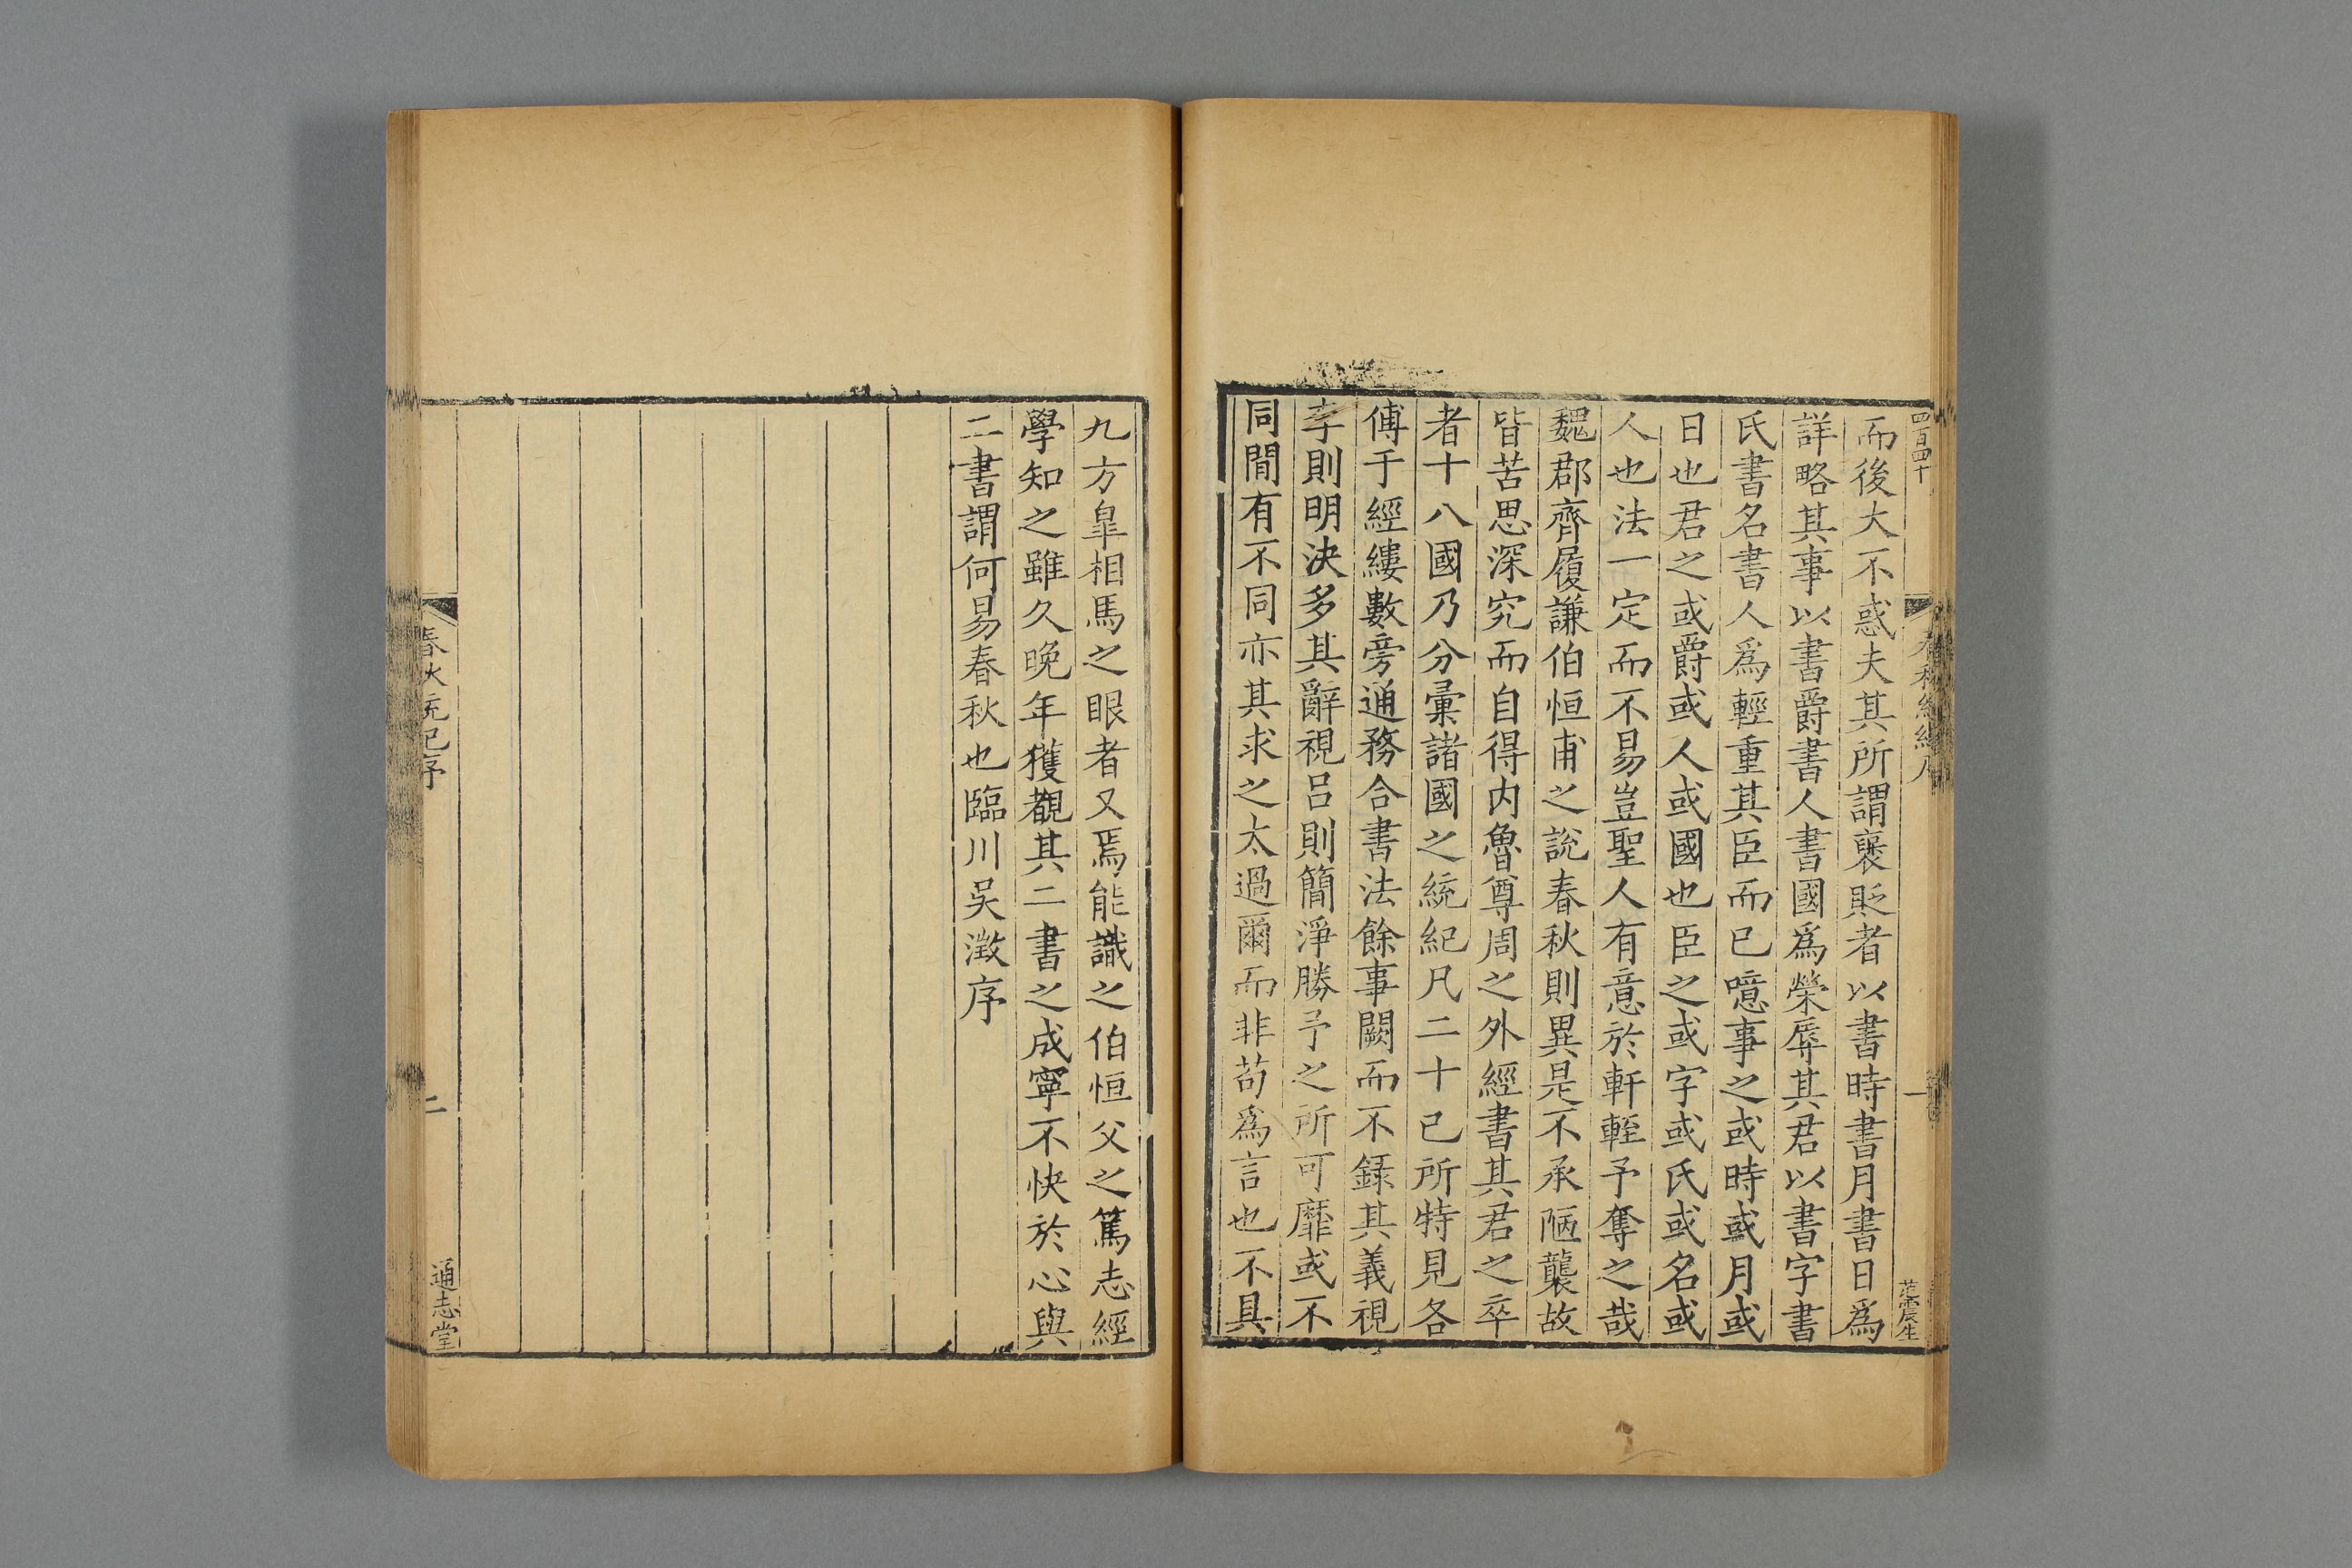 四百四十
而後大不惑夫其所謂襃貶者以書時書月書日爲
詳略其事以書爵書人書國爲榮辱其君以書字書
氏書名書人爲輕重其臣而已噫事之或時或月或
日也君之或爵或人或國也臣之或字或氏或名或
人也法一定而不易豈聖人有意於軒輊予奪之哉
魏郡齊履謙伯恒甫之說春秋則異是不承陋襲故
皆苦思深究而自得内魯尊周之外經書其君之卒
者十八國乃分彙諸國之統紀凡二十已所特見各
傅于經縷數旁通務合書法餘事闕而不錄其義視
李則明決多其辭視呂則簡淨勝予之所可靡或不
同間有不同亦其求之太過爾而非苟爲言也不具
九方皐相馬之眼者又焉能識之伯恒父之篤志經
學知之雖久晚年獲覩其二書之成寧不快於心與
二書謂何易春秋也臨川吳澂序
春秋統紀序
二
通志堂